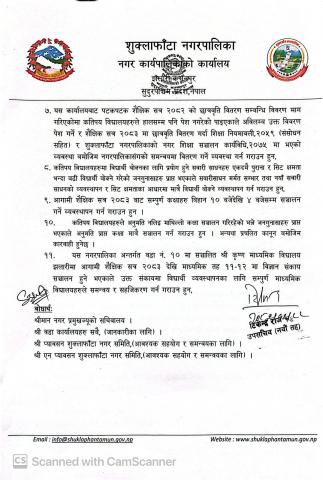 शुक्लाफाँटा नगरपालिका
नगर कार्यपालिकाको कार्यालय
सुदूरपश्चिम प्रदेश, नेपाल
७. यस कार्यालयबाट पटकपटक शैक्षिक सत्र २०८२ को छात्रवृति वितरण सम्बन्धि विवरण माग
गरिएकोमा कतिपय विद्यालयहरुले हालसम्म पनि पेश नगरेको पाइएकाले अविलम्ब उक्त विवरण
पेश गर्ने र शैक्षिक सत्र २०८३ मा छात्रवृति वितरण गर्दा शिक्षा नियमावली,२०५९ (संसोधन
सहित) र शुक्लाफाँटा नगरपालिकाको नगर शिक्षा सञ्चालन कार्यविधि,२०७५ मा भएको
व्यवस्था बमोजिम नगरपालिकासंगको समन्वयमा वितरण गर्ने व्यवस्था गर्न गराउन हुन,
८. कतिपय विद्यालयहरुमा विद्यार्थी बोक्नका लागि प्रयोग हुने सवारी साधनहरु एकदमै पुराना र सिट क्षमता
भन्दा बढी विद्यार्थी बोक्ने गरेको जनगुनासाहरु प्राप्त भएकाले सवारीसाधन मर्मत सम्भार तथा नयाँ सवारी
साधनको व्यवस्थापन र सिट क्षमताका आधारमा मात्रै विद्यार्थी बोक्ने व्यवस्थापन गर्न गराउन हुन,
९. आगामी शैक्षिक सत्र २०८३ बाट सम्पूर्ण कक्षाहरु विहान १० बजेदेखि ४ बजेसम्म सञ्चालन
गर्ने व्यवस्थापन गर्न गराउन हुन ।
१०. कतिपय विद्यालयहरुले अनुमति नलिइ माथिल्लो कक्षा सञ्चालन गरिरहेको भन्ने जनगुनासाहरु प्राप्त
भएकाले अनुमति प्राप्त कक्षा मात्रै सञ्चालन गर्न गराउन हुन । अन्यथा प्रचलित कानून बमोजिम
कारवाही हुनेछ ।
११. यस नगरपालिका अन्तर्गत वडा नं. १० मा सञ्चालित श्री कृष्ण माध्यमिक विद्यालय
झलारीमा आगामी शैक्षिक सत्र २०८३ देखि माध्यमिक तह ११-१२ मा विज्ञान संकाय
सञ्चालन हुने भएकाले उक्त संकायमा विद्यार्थी व्यवस्थापनका लागि सम्पूर्ण माध्यमिक
विद्यालयहरुले समन्वय र सहजिकरण गर्न गराउन हुन ।
बोधार्थ:
श्रीमान नगर प्रमुखज्यूको सचिवालय ।
श्री वडा कार्यालयहरु सबै, (जानकारीका लागि) ।
श्री प्याब्सन शुक्लाफाँटा नगर समिति,(आवश्यक सहयोग र समन्वयका लागि) ।
श्री एन प्याब्सन शुक्लाफाँटा नगर समिति,(आवश्यक सहयोग र समन्वयका लागि) ।
उपसचिव (नवौं तह)
Email : info@shuklaphantamun.gov.np
Website : www.shuklaphantamun.gov.np
CS Scanned with CamScanner